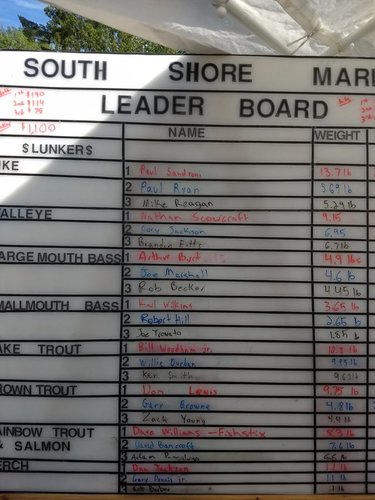 SOUTH SHORE MARI
1st $190
2nd $114
3rd $75
LEADER BOARD
1st
2nd
3rd
$1,100
NAME WEIGHT
SLUNKERS
IKE 1 Paul Sandroni 13.7 lb
2 Paul Ryan 5.69 lb
3 Mike Reagan 5.29 lb
ALLEYE 1 Nathan Scowcroft 9.15
2 Cory Jackson 6.95
3 Brandon 6.71 lb
ARGE MOUTH BASS 1 Arthur 4.9 lbs
2 Joe Marshall 4.6 lb
3 Rob Becker 4.45 lb
MALLMOUTH BASS 1 Karl Wilkins 3.65 lb
2 Robert Hill 2.65 lb
3 Joe 1.85 lb
AKE TROUT 1 Bill Woodham jr.
2 Willie Durdan
3 Ken Smith 9.63 lb
ROWN TROUT 1 Don Lewis 9.75 lb
2 Gary Browne 4.8 lb
3 Zach Young 4.4 lb
AINBOW TROUT 1 Dave Williams - Fishstix
& SALMON 2 David Bancroft 7.6 lb
3 Adam 6.6 lb
ERCH 1 Dan Jackson 1.1 lb
2 Gary Pennis jr 1.1 lb
3 Rob Barber 1 lb